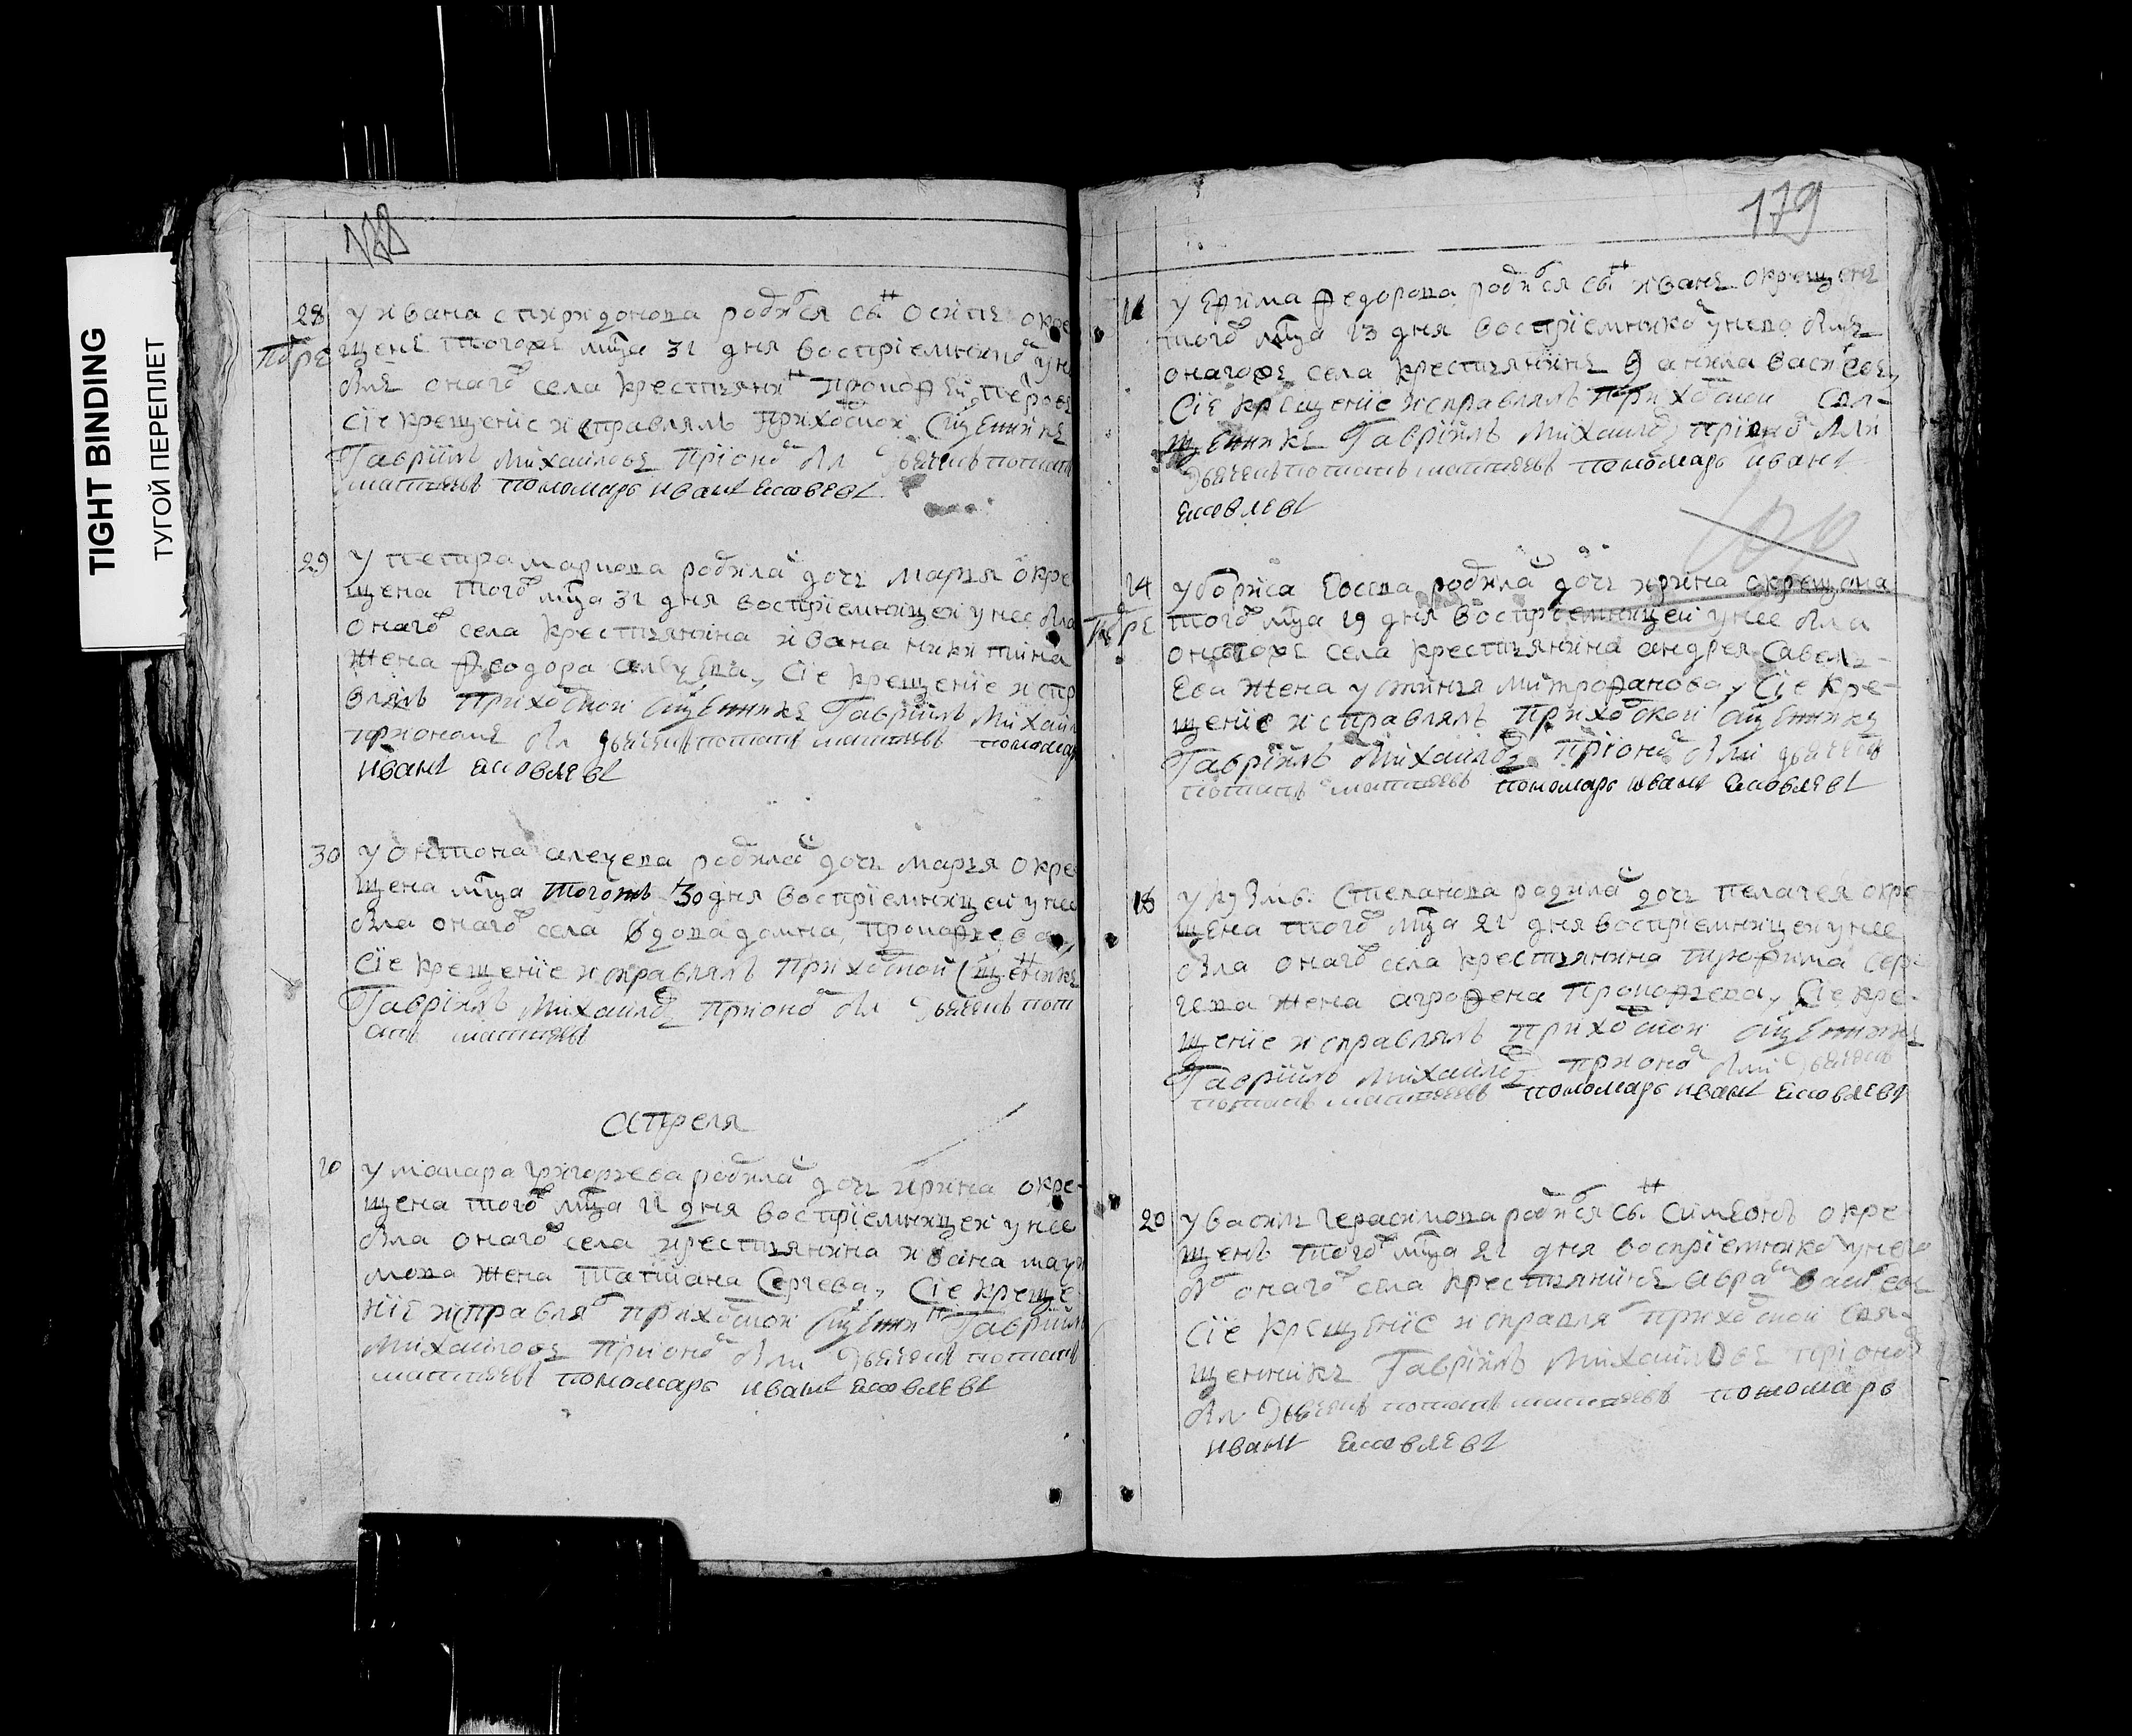 TIGHT BINDING
ТУГОЙ ПЕРЕПЛЕТ
28 У ивана спиридонова родился сынъ осипъ окре
щенъ тогожъ мца 31 дня воспрiемникомъ у не
былъ онаго села крестьянинъ прокофей петровъ
Сiе крещенiе исправлялъ приходской сщенникъ
Гаврiилъ Михаиловъ прiономъ былъ дьячекъ потапъ
матвѣевъ пономарь иванъ яковлевъ
29 У петра маркова родилась дочь марья окре
щена того мца 31 дня воспрiемницей у нее была
онаго села крестьянина ивана никитина
жена феодора Сiе крещенiе испр
влялъ приходской сщенникъ Гаврiилъ Михаил
приономъ был дьячекъ потапъ матвѣевъ пономар
иванъ яковлевъ
30 У онтона алеѯева родилась дочь марья окре
щена мца тогожъ 30 дня воспрiемницей у нее
была онаго села вдова домна прокофьева,
Сiе крещенiе исправлялъ приходской сщенникъ
Гаврiилъ Михаиловъ приономъ был дьячекъ пот
апъ матвѣевъ
апреля
10 У макара григорьева родилась дочь ирина окре-
щена того мца 11 дня воспрiемницей у нее
была онаго села крестьянина ивана
жена татиана Сергева, Сiе креще
нiе исправлялъ приходской сщенникъ Гаврiилъ
Михаиловъ прiономъ были дьячекъ потапъ
матвѣевъ пономарь иванъ яковлевъ
179
11 У Ефима федорова родился сынъ иванъ окрещенъ
того мца 13 дня воспрiемникомъ у него былъ
онагожъ села крестьянинъ данила васильевъ,
Сiе крещенiе исправлялъ приходской свя-
щенникъ Гаврiилъ Михаиловъ прiономъ были
дьячекъ потапъ матвѣевъ пономарь иванъ
яковлевъ
14 У бориса родилась дочь ирина окрещена
того мца 19 дня воспрiемницей у нее была
онагожъ села крестьянина андрея Савель-
ева жена устинья митрофанова, Сiе кре-
щенiе исправлялъ приходской сщенникъ
Гаврiилъ Михаиловъ прiономъ были дьячекъ
потапъ матвѣевъ пономарь иванъ яковлевъ
18 У кузмы Степанова родилась дочь пелагея окре-
щена того мца 21 дня воспрiемницей у нее
была онаго села крестьянина трофима Сер
геева жена аграфена прокофьева, Сiе кре-
щенiе исправлялъ приходской сщенникъ
Гаврiилъ Михаиловъ приономъ были дьячекъ
потапъ матвѣевъ пономарь иванъ яковлевъ
20 У василь герасимова родился сынъ Симеонъ окре
щенъ того мца 21 дня воспрiемникомъ у него
былъ онаго села крестьянинъ аврамъ васильевъ
Сiе крещенiе исправлялъ приходской свя-
щенникъ Гаврiилъ Михаиловъ прiономъ
были дьячекъ потапъ матвѣевъ пономарь
иванъ яковлевъ